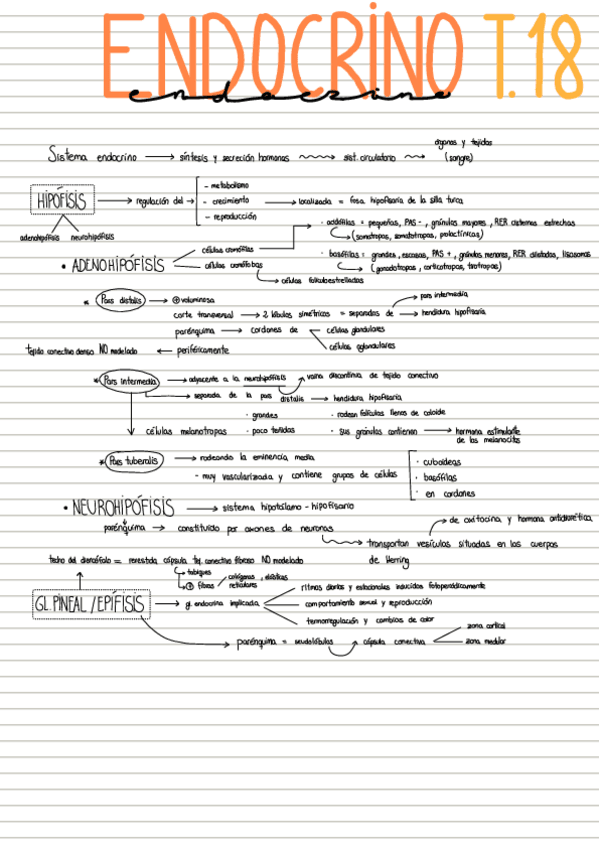 ENDOCRINO T.18
endocrino
Sistema endocrino → síntesis y secreción hormonas → sist. circulatorio → órganos y tejidos
(sangre)
HIPÓFISIS → regulación del →
- metabolismo
- crecimiento → localizada = fosa hipofisaria de la silla turca
- reproducción
adenohipófisis neurohipófisis
• ADENOHIPÓFISIS
células cromófilas
• acidófilas = pequeñas, PAS -, gránulos mayores, RER cisternas estrechas
(somatotropas, prolactínicas)
• basófilas = grandes, escasas, PAS +, gránulos menores, RER dilatados, lisosomas
(gonadotropas, corticotropas, tirotropas)
células cromófobas
→ células foliculoestrelladas
* Pars distalis → ⊕ voluminosa
corte transversal → 2 lóbulos simétricos = separados de → pars intermedia
→ hendidura hipofisaria
parénquima → cordones de
células glandulares
células aglandulares
tejido conectivo denso NO modelado ← periféricamente
* Pars intermedia → adyacente a la neurohipófisis → vaina discontinua de tejido conectivo
→ separada de la pars distalis → hendidura hipofisaria
células melanotropas
• grandes
• poco teñidas
• rodean folículos llenos de coloide
• sus gránulos contienen → hormona estimulante
de los melanocitos
* Pars tuberalis → rodeando la eminencia media
- muy vascularizada y contiene grupos de células
• cuboideas
• basófilas
• en cordones
• NEUROHIPÓFISIS → sistema hipotálamo - hipofisario
parénquima → constituido por axones de neuronas
→ transportan vesículas situadas en los cuerpos
de Herring
→ de oxitocina y hormona antidiurética
techo del diencéfalo = revestida cápsula tej. conectivo fibroso NO modelado
→ tabiques
→ ⊕ fibras
colágenas, elásticas
reticulares
GL. PINEAL / EPÍFISIS → gl. endocrina implicada
ritmos diarios y estacionales inducidos fotoperiódicamente
comportamiento sexual y reproducción
termorregulación y cambios de color
parénquima = seudolóbulos → cápsula conectiva
zona cortical
zona medular